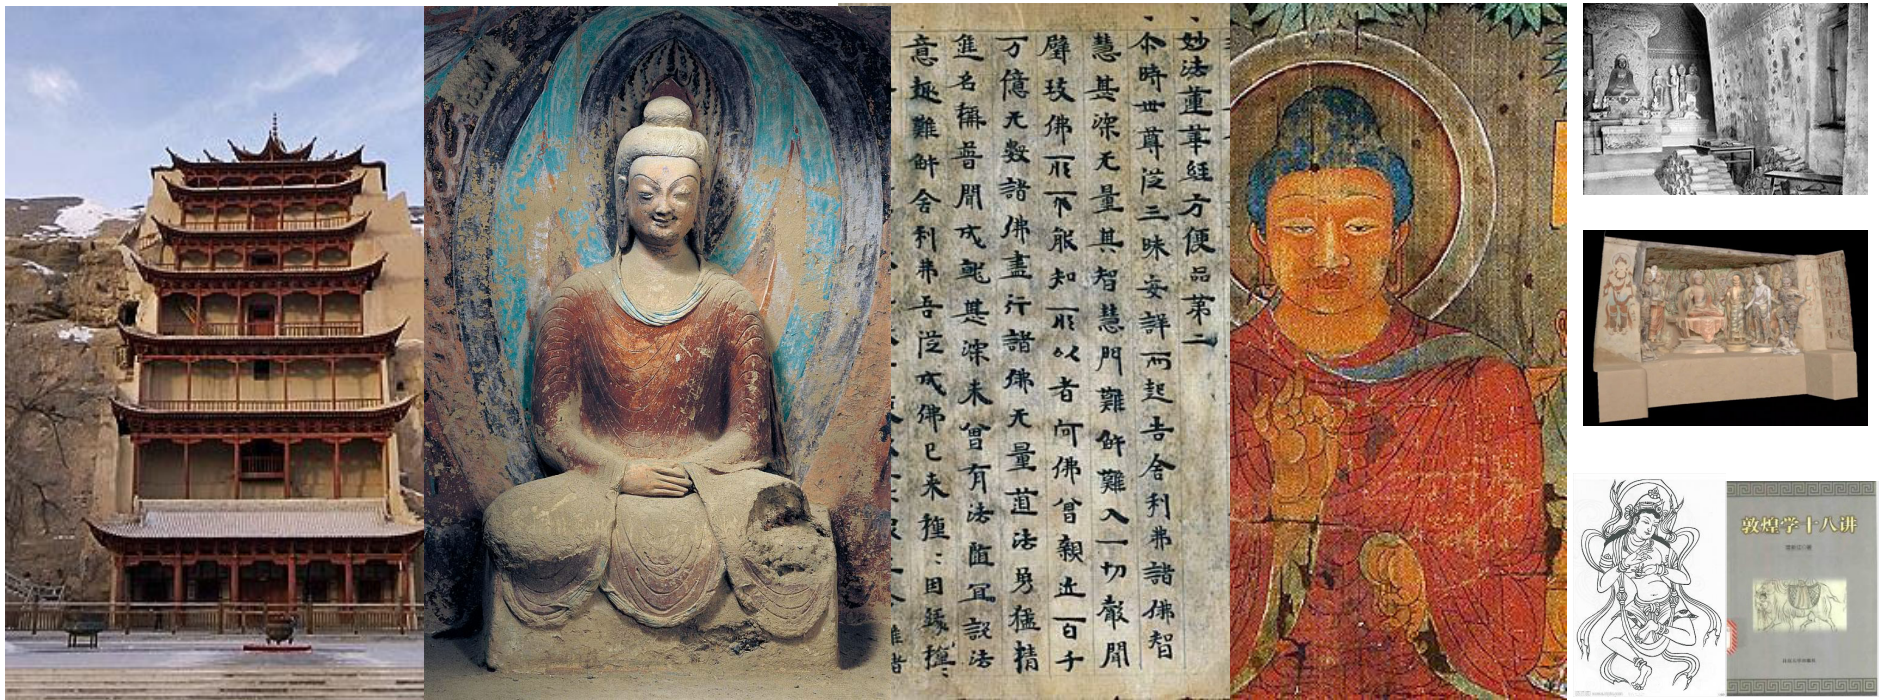 妙法蓮華經方便品第二
尒時世尊從三昧安詳而起告舍利弗諸佛智
慧甚深无量其智慧門難解難入一切聲聞
辟支佛所不能知所以者何佛曾親近百千
万億无數諸佛盡行諸佛无量道法勇猛精
進名稱普聞成就甚深未曾有法隨冝説法
意趣難解舍利弗吾從成佛已来種〻因緣種〻
敦煌学十八讲